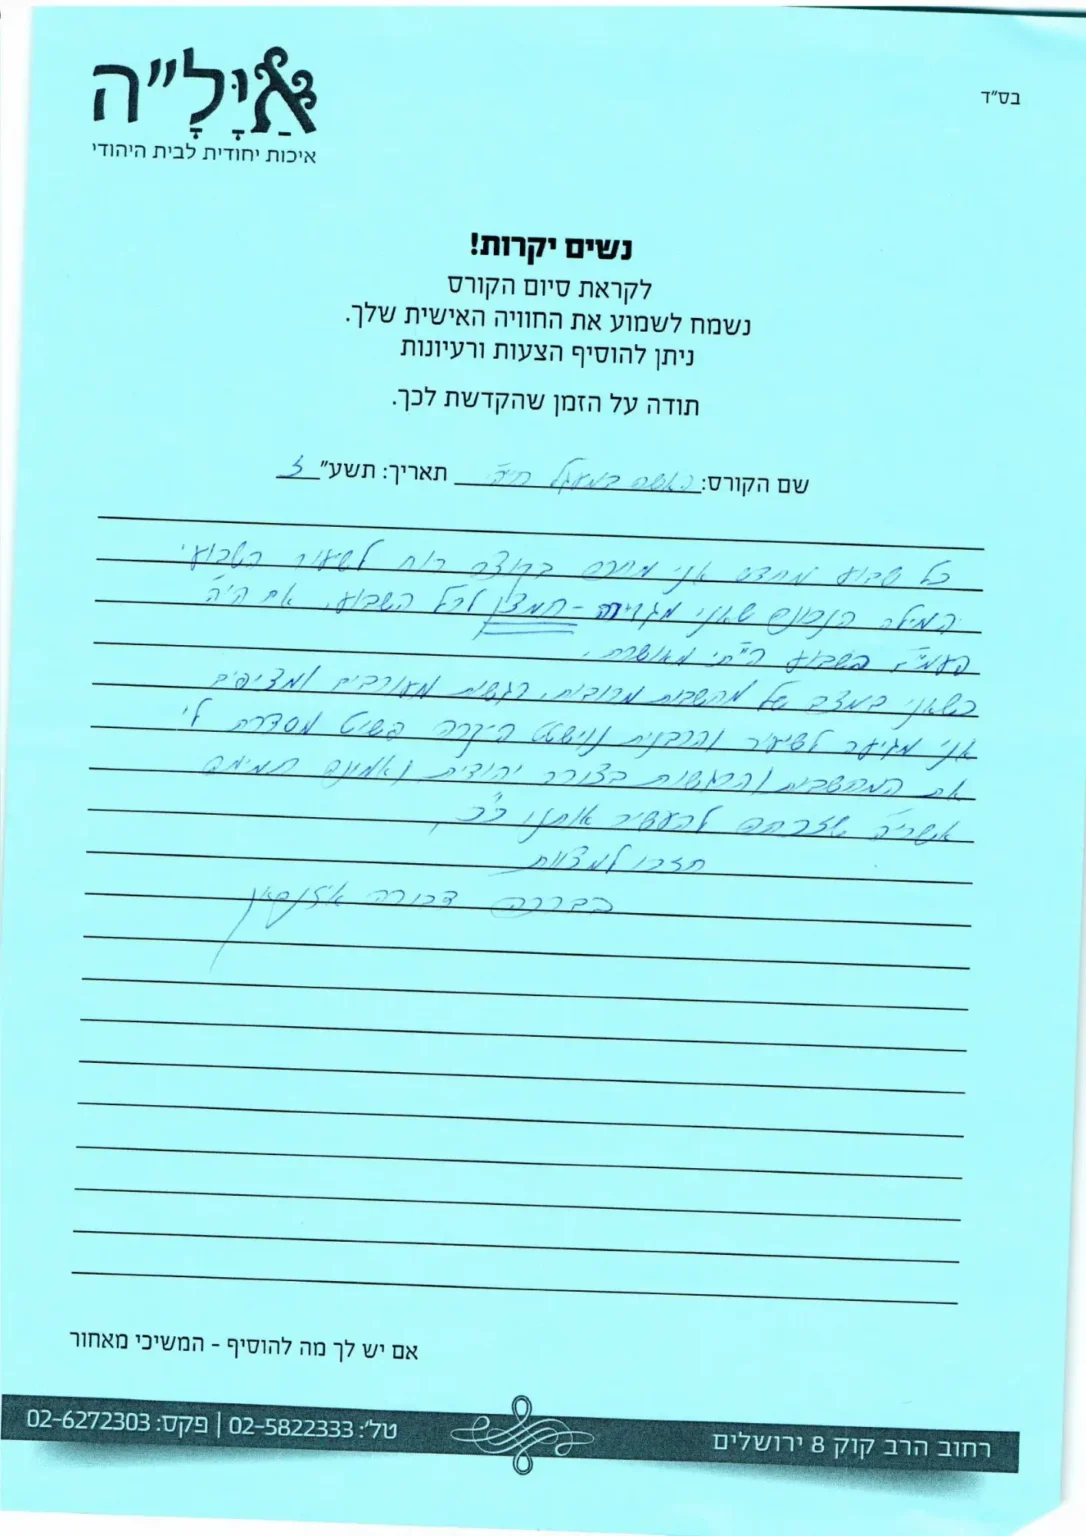 בס"ד
אַיָּלָ"ה
איכות יחודית לבית היהודי
נשים יקרות!
לקראת סיום הקורס
נשמח לשמוע את החוויה האישית שלך.
ניתן להוסיף הצעות ורעיונות
תודה על הזמן שהקדשת לכך.
שם הקורס: האשה במעגל חייה תאריך: תשע"ז
כל שבוע מחדש אני מחכה בקוצר רוח לשעור השבועי
המילה הנכונה שאני מגדירה - חמצן לכל השבוע. אם היה
פעמיים בשבוע הייתי מאושרת.
כשאני במצב של מחשבות מרובות, רגשות מעורבים ומציפים
אני מגיעה לשיעור והרבנית היקרה פשוט מסדרת לי
את המחשבות והרגשות בצורה יהודית ואמינה תמימה
אשריה שזכתה להעשיר אותנו כ"כ,
תזכו למצוות
בברכה דבורה
אם יש לך מה להוסיף - המשיכי מאחור
רחוב הרב קוק 8 ירושלים טל': 02-5822333 | פקס: 02-6272303